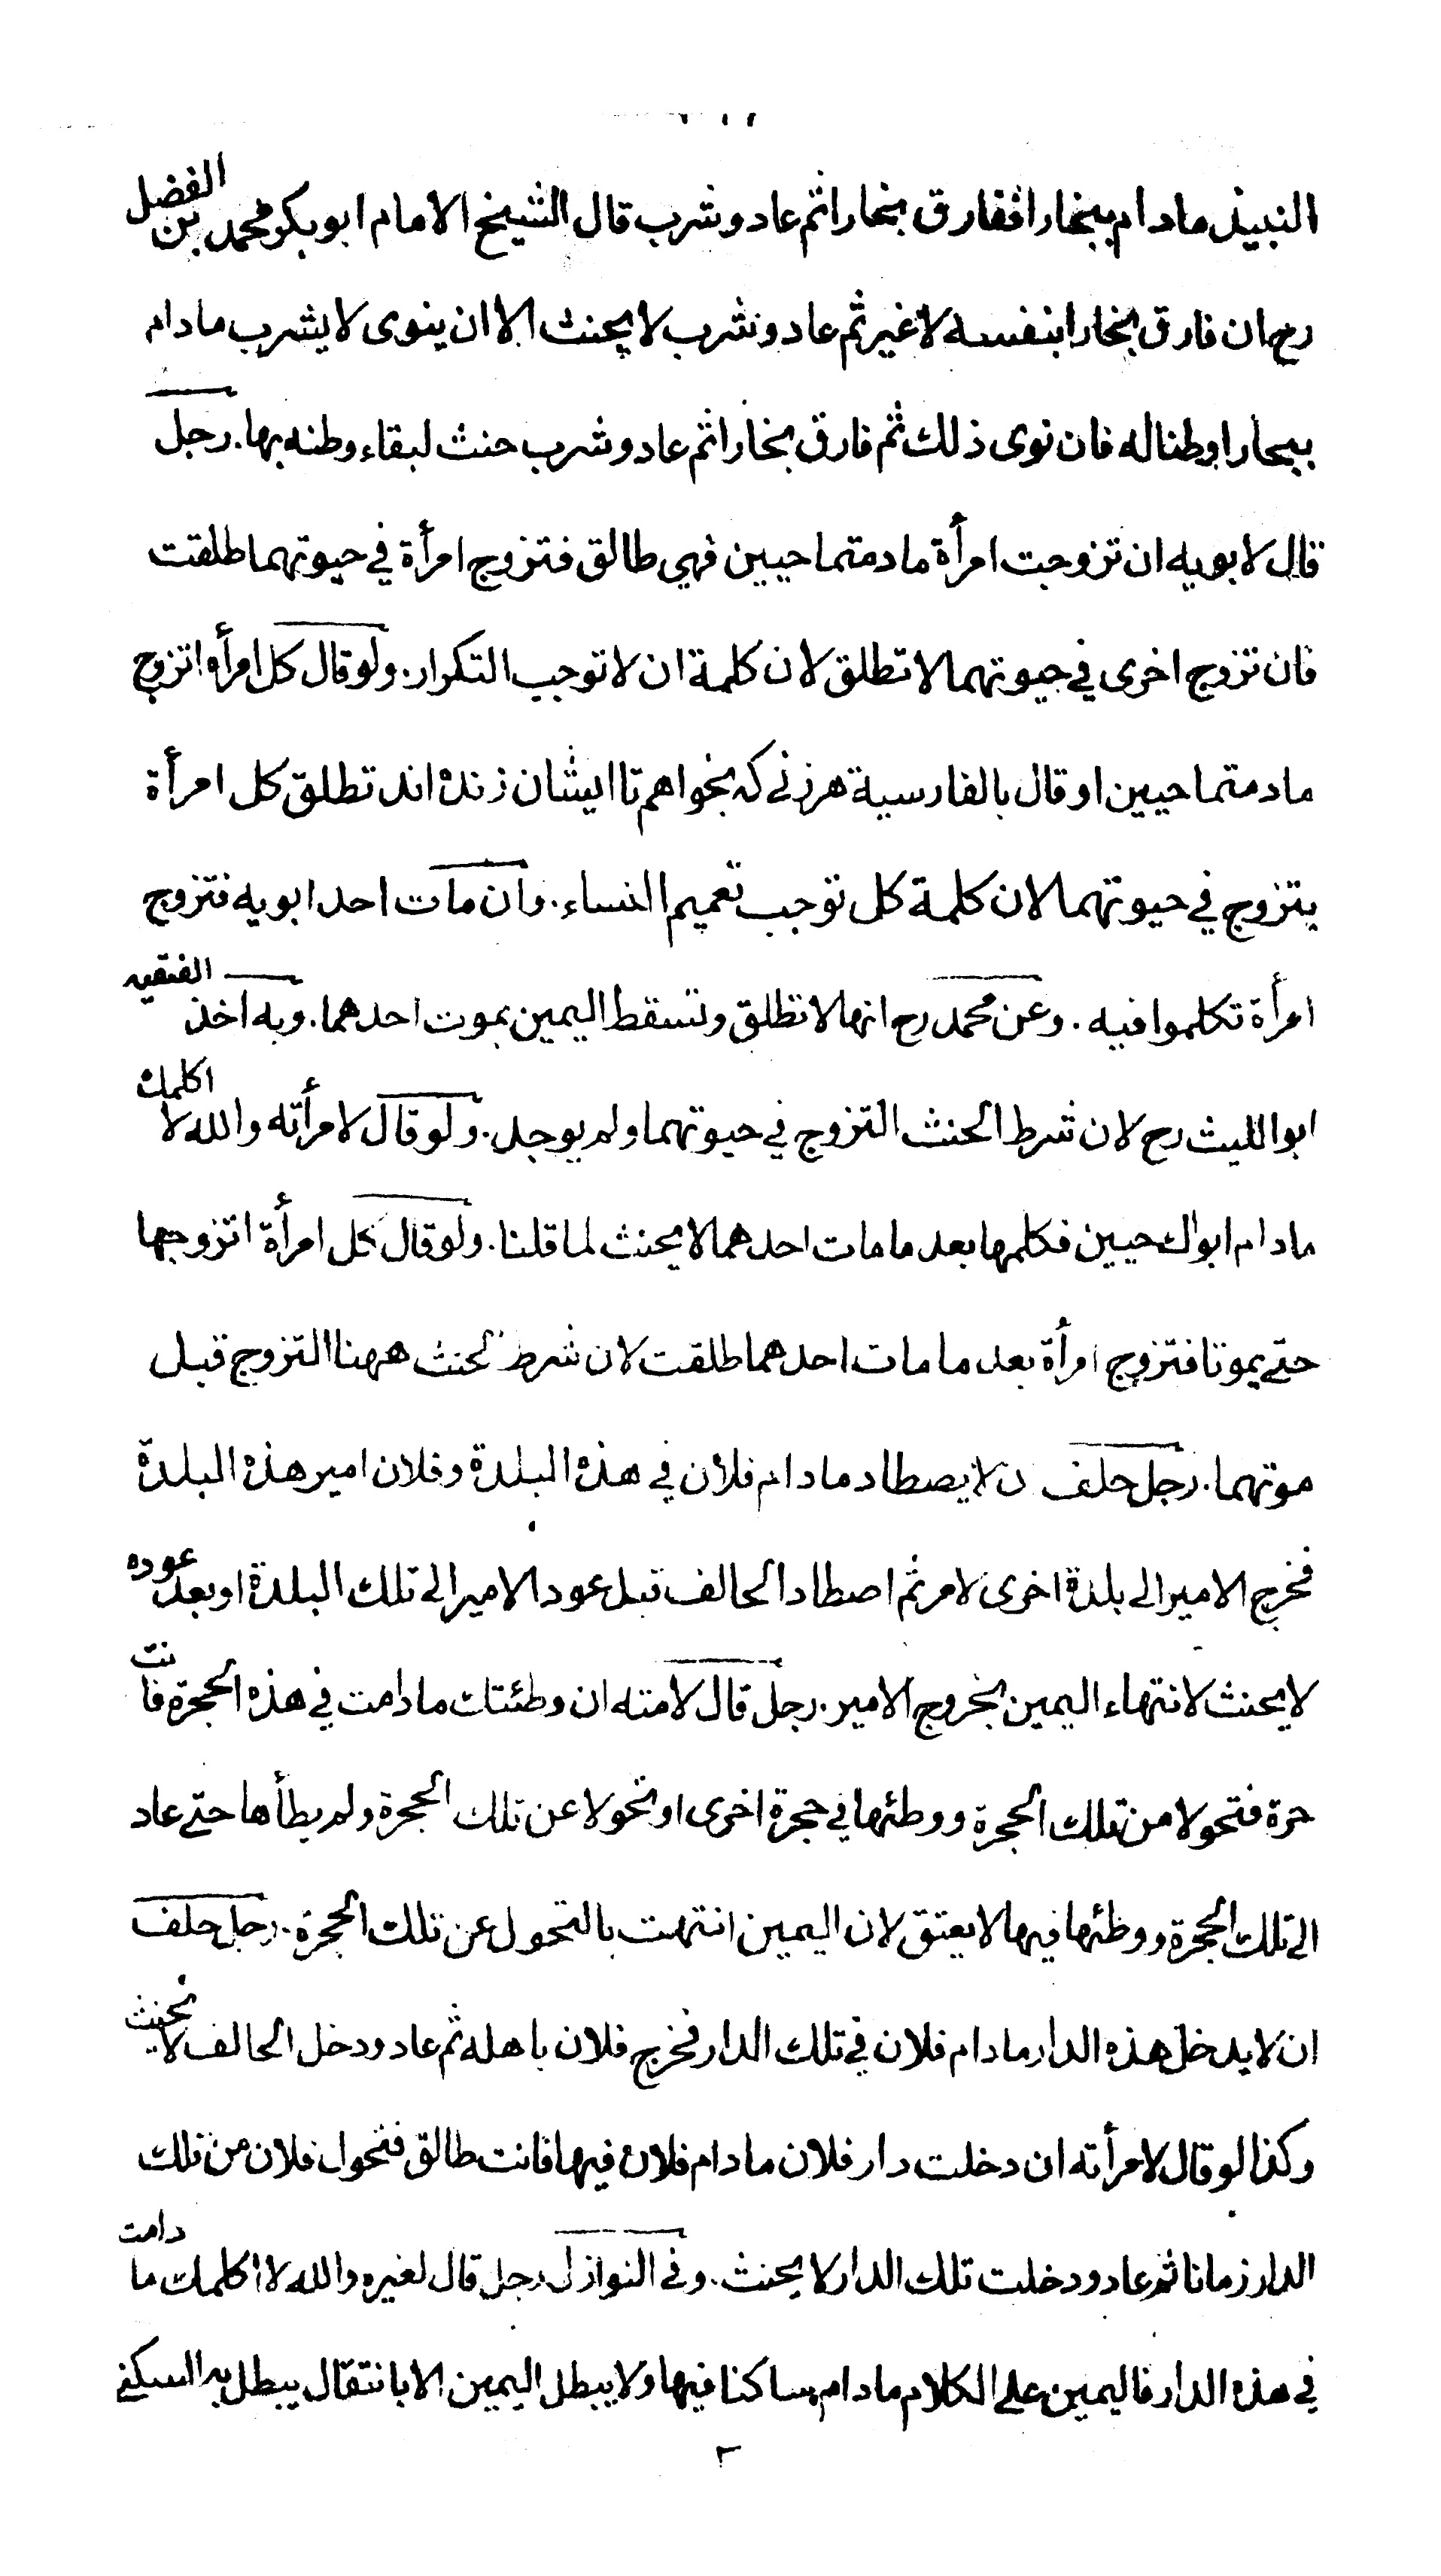 النبيذ مادام ببخارا ففارق بخارا ثم عاد وشرب قال الشيخ الامام ابوبكر محمد بن الفضل
رح ان فارق بخارا بنفسه لا غير ثم عاد وشرب لا يحنث الا ان ينوى لا يشرب مادام
ببخارا وطنا له فان نوى ذلك ثم فارق بخارا ثم عاد وشرب حنث لبقاء وطنه بها. رجل
قال لابويه ان تزوجت امرأة مادمتما حيين فهي طالق فتزوج امرأة في حيوتهما طلقت
فان تزوج اخرى في حيوتهما لا تطلق لان كلمة ان لا توجب التكرار. ولو قال كل امرأه اتزوج
مادمتما حيين او قال بالفارسية هرزني كه بخواهم تا ايشان زنده اند تطلق كل امرأة
يتزوج في حيوتهما لان كلمة كل توجب تعميم النساء. وان مات احد ابويه فتزوج
امرأة تكلموا فيه. وعن محمد رح انها لا تطلق وتسقط اليمين بموت احدهما. وبه اخذ الفقيه
ابو الليث رح لان شرط الحنث التزوج في حيوتهما ولم يوجد. ولو قال لامرأته والله لا اكلمك
مادام ابواك حيين فكلمها بعد ما مات احدهما لا يحنث لما قلنا. ولو قال كل امرأة اتزوجها
حتى يموتا فتزوج امرأة بعد ما مات احدهما طلقت لان شرط الحنث ههنا التزوج قبل
موتهما. رجل حلف ان لا يصطاد مادام فلان في هذه البلدة وفلان امير هذه البلدة
فخرج الامير الى بلدة اخرى لامر ثم اصطاد الحالف قبل عود الامير الى تلك البلدة او بعد عوده
لا يحنث لانتهاء اليمين بخروج الامير. رجل قال لامته ان وطئتك مادامت في هذه الحجرة فانت
حرة فتحولا من تلك الحجرة ووطئها في حجرة اخرى او تحولا عن تلك الحجرة ولم يطأها حتى عاد
الى تلك الحجرة ووطئها فيها لا يعتق لان اليمين انتهت بالتحول عن تلك الحجرة. رجل حلف
ان لا يدخل هذه الدار مادام فلان في تلك الدار فخرج فلان باهله ثم عاد ودخل الحالف لا يحنث
وكذا لو قال لامرأته ان دخلت دار فلان مادام فلان فيها فانت طالق فتحول فلان من تلك
الدار زمانا ثم عاد ودخلت تلك الدار لا يحنث. وفي النوازل رجل قال لغيره والله لا اكلمك ما دامت
في هذه الدار فاليمين على الكلام مادام ساكنا فيها ولا يبطل اليمين الا بانتقال يبطل به السكنى